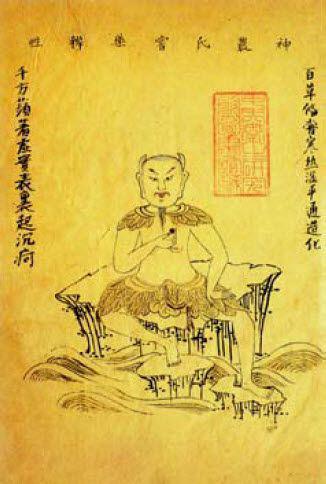 神農氏嘗藥辨性
百草備嘗寒熱溫平通造化
千方著虛實表裏起沉疴